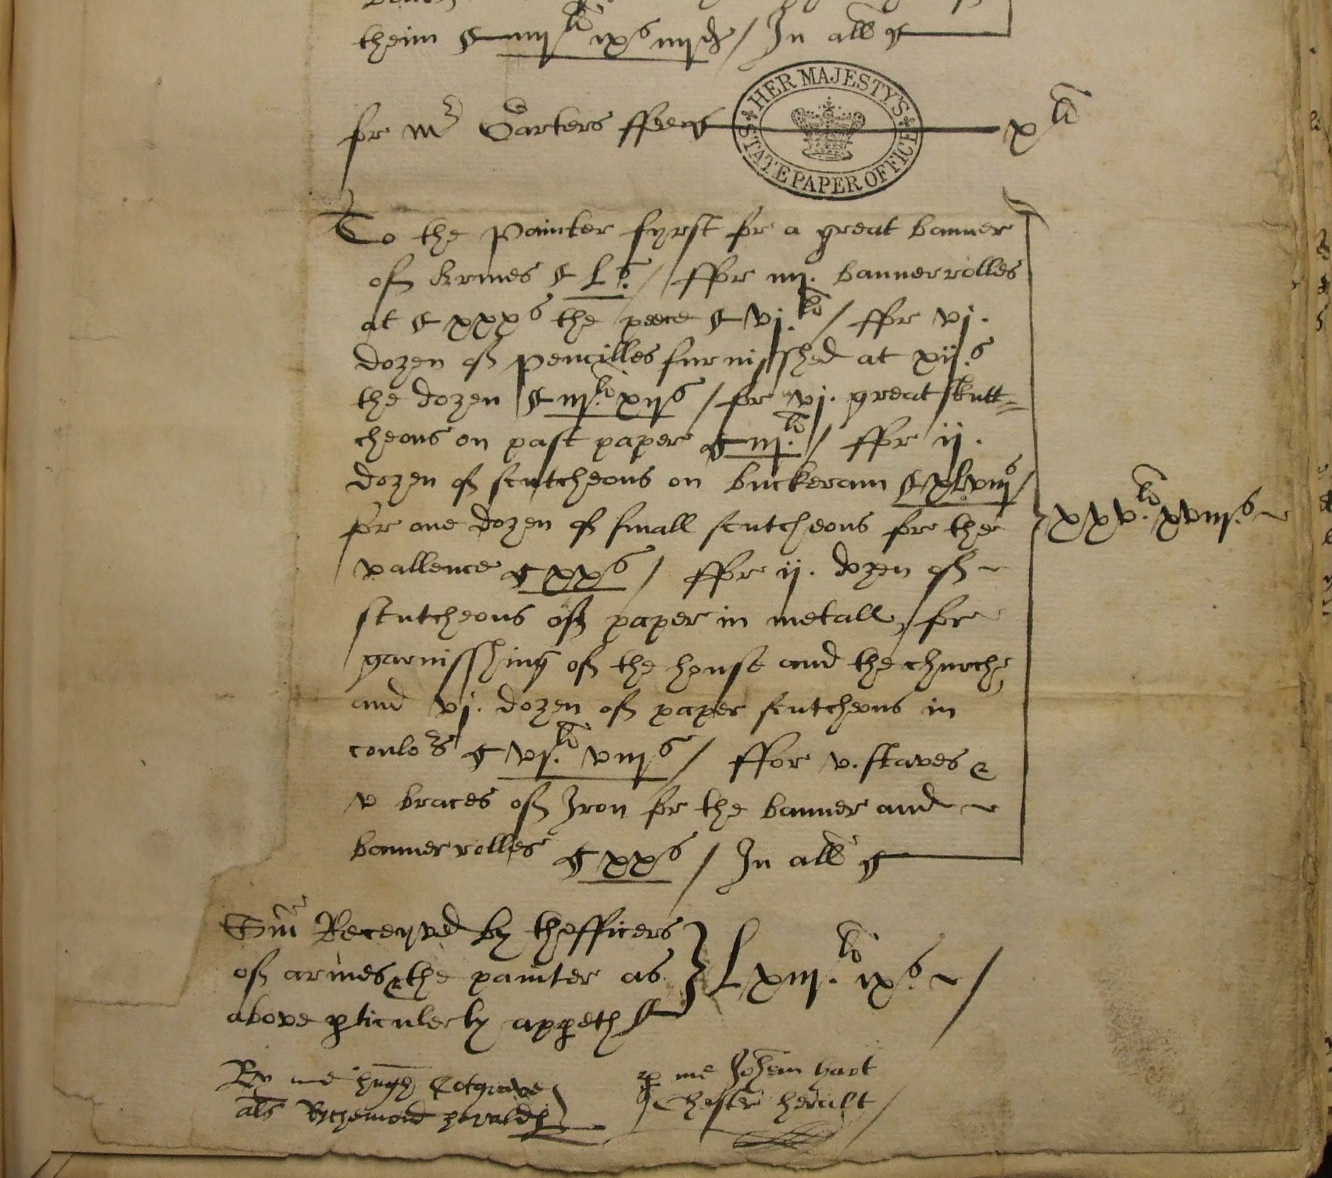 theim — iiij li ix s iiij d / In all —
for Mr Garters ffees — x li
HER MAJESTY'S STATE PAPER OFFICE
To the Painter fyrst for a great banner
of Armes — L s / ffor iiij. bannerrolles
at — xxx s the peece — vj. li / ffor vj.
dozen of pencilles furnisshed at xij. s
the dozen — iij. li xij s / for vj. great skutt=
cheons on past paper — iij. li / ffor ij.
dozen of scutcheons on buckeram — xLviij s /
for one dozen of small scutcheons for the
vallence — xx s / ffor ij. dozen of
scutcheons of paper in metall, for
garnisshing of the house and the churche,
and vj. dozen of paper scutcheons in
coulors — vj. li viij s / ffor v. staves &
v braces of Iron for the banner and
bannerrolles — xx s / In all —
xxv. li xviij. s
Sm Receyved by thefficers
of armes & the painter as
above pticulerly appeth
Lxiij. li ix s. /
By me hugh Cotgrave
als Rychemond herald
p me John hart
Chester heralt